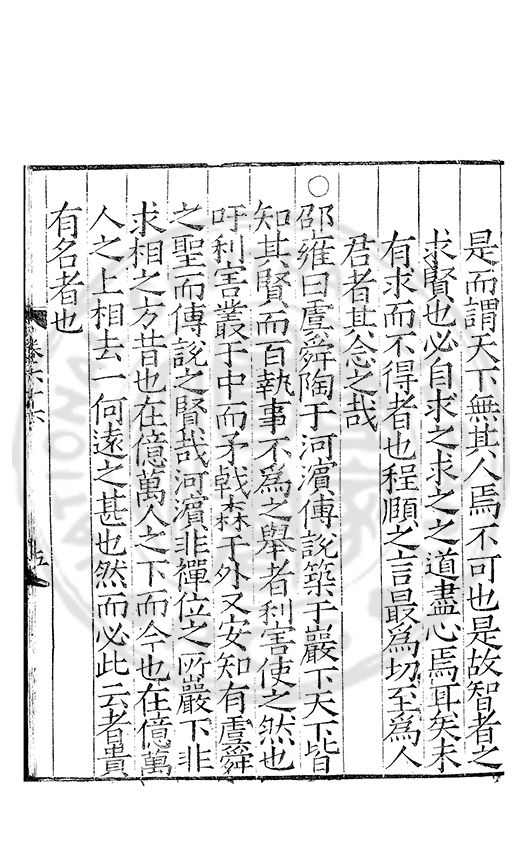 是而謂天下無其人焉不可也是故智者之
求賢也必自求之求之之道盡心焉耳矣未
有求而不得者也程頤之言最為切至為人
君者其念之哉
○邵雍曰虞舜陶于河濵傅說築于巖下天下皆
知其賢而百執事不為之舉者利害使之然也
吁利害叢于中而矛戟森于外又安知有虞舜
之聖而傅說之賢哉河濵非禪位之所巖下非
求相之方昔也在億萬人之下而今也在億萬
人之上相去一何遠之甚也然而必此云者貴
有名者也